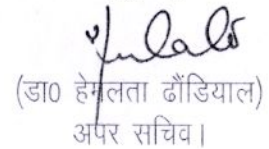 (डा० हेमलता ढौंडियाल)
अपर सचिव।